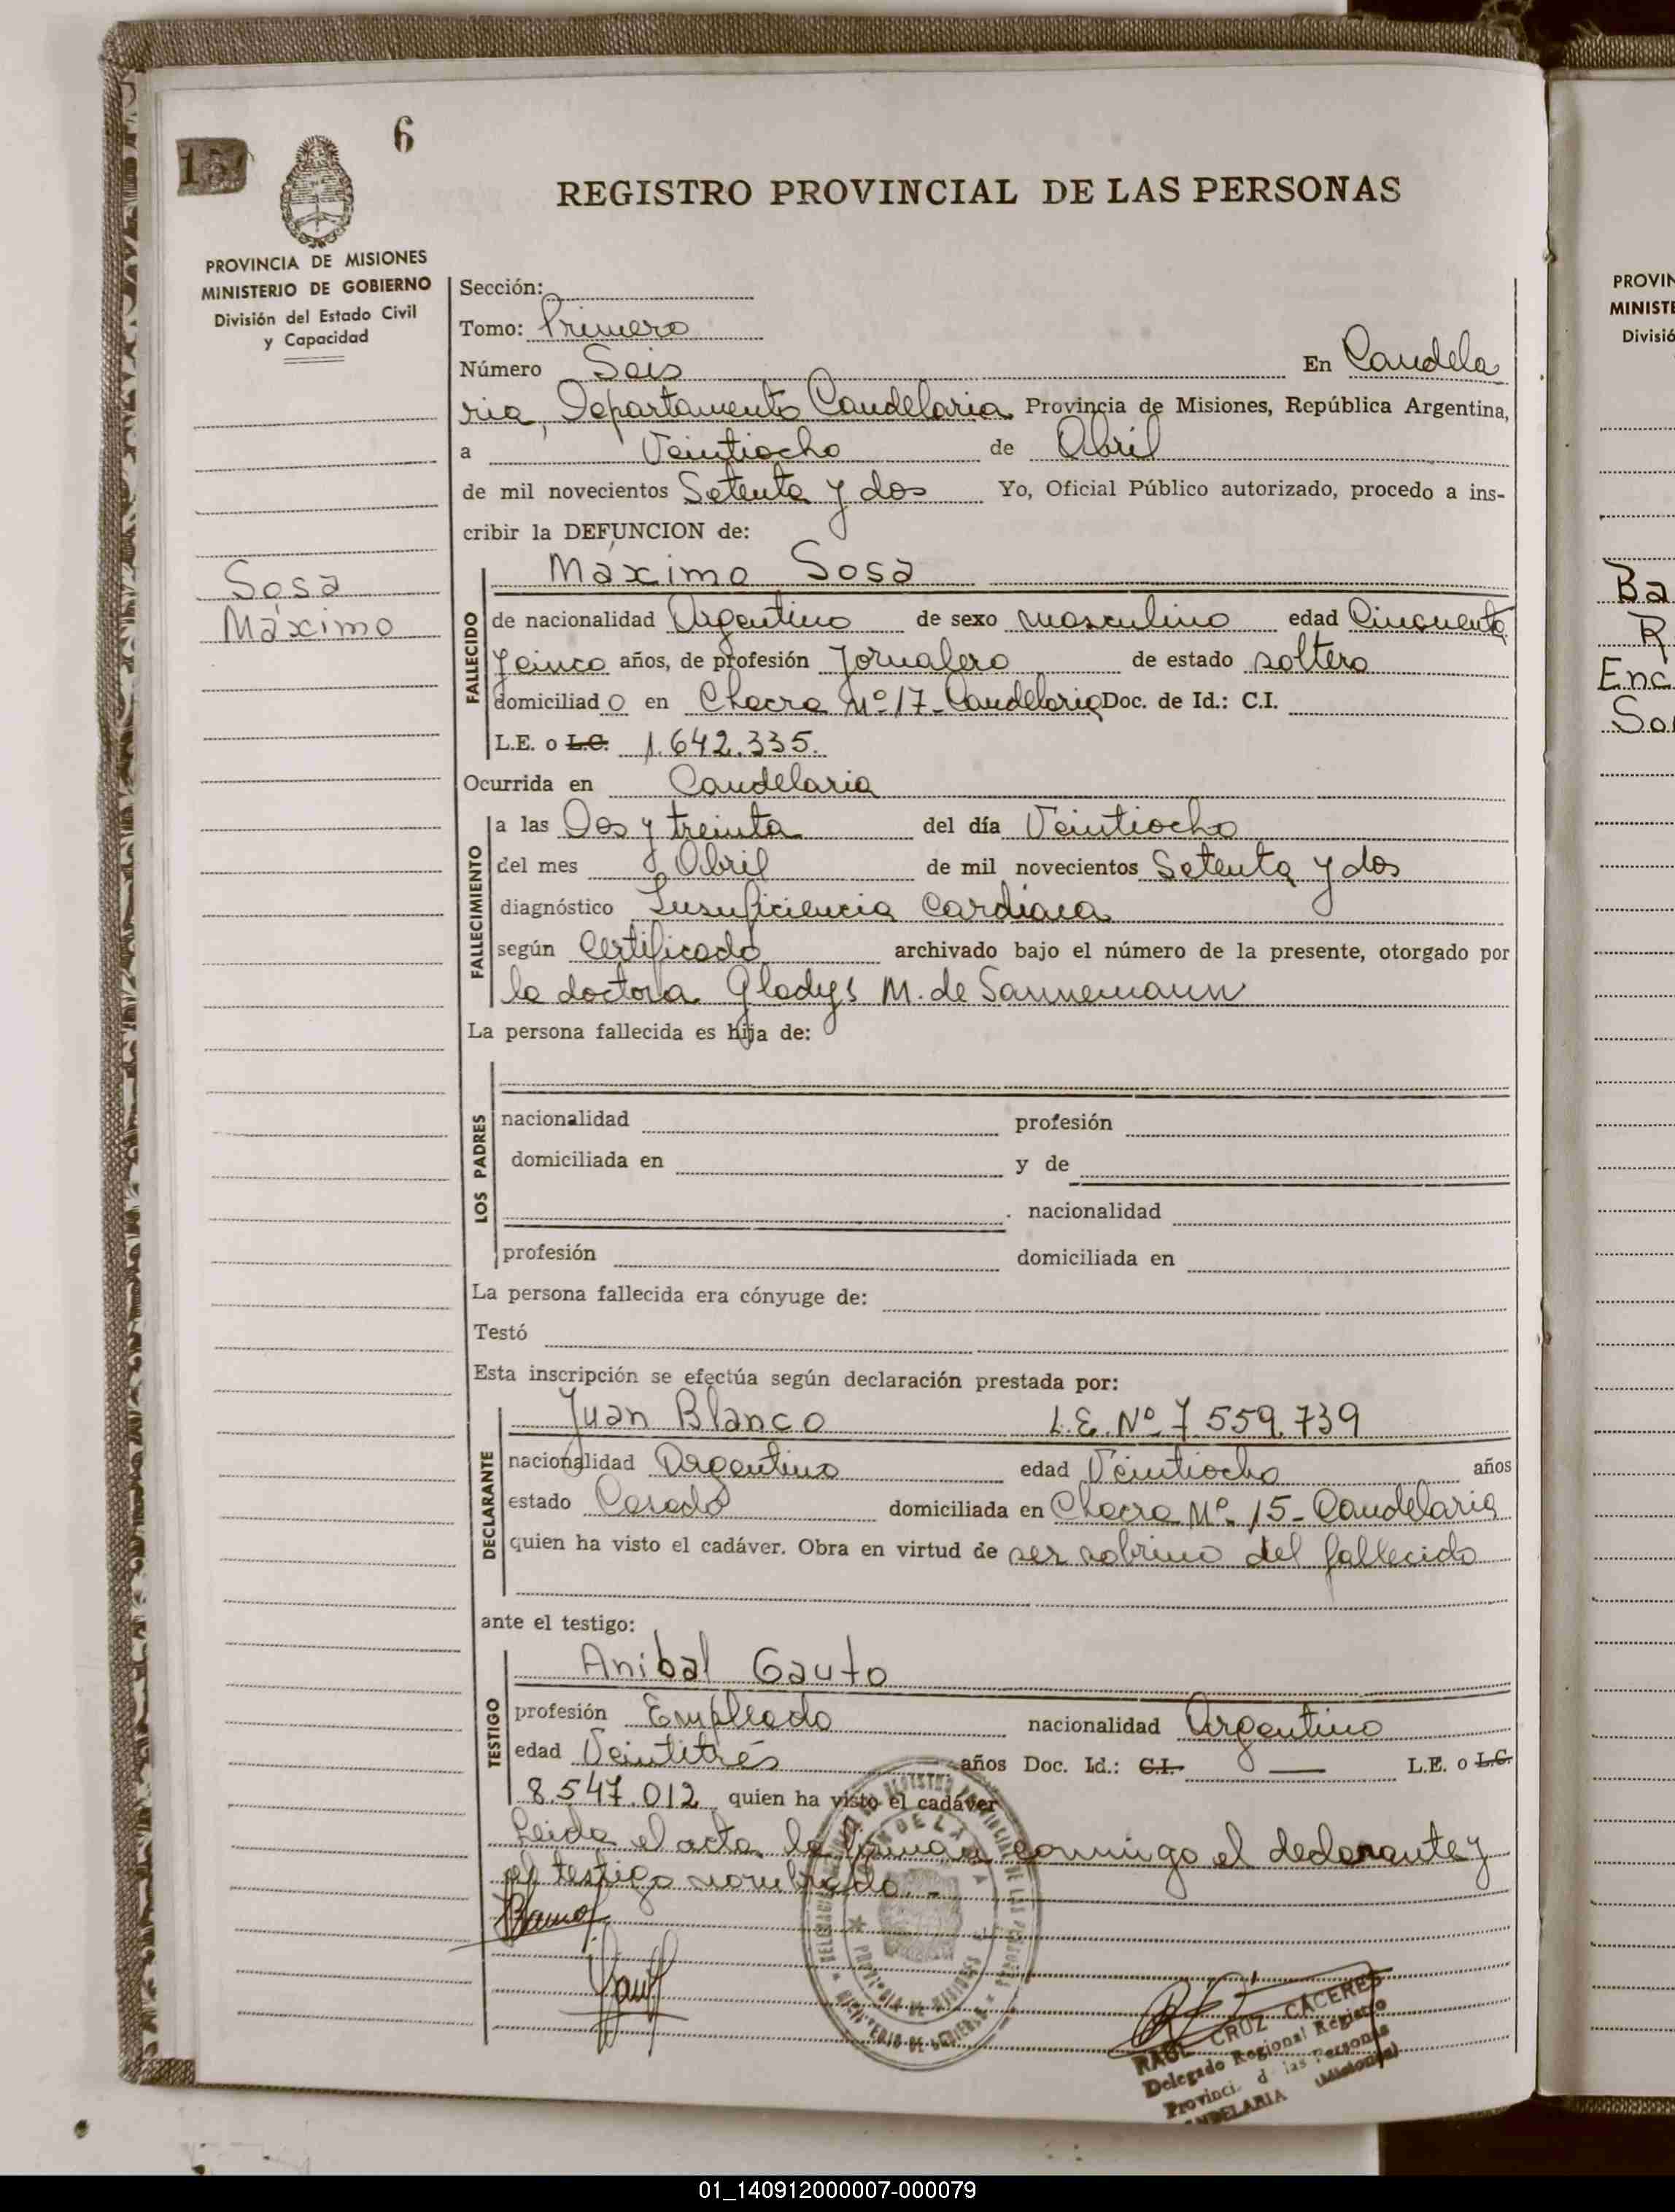 6
15
REGISTRO PROVINCIAL DE LAS PERSONAS
PROVINCIA DE MISIONES
MINISTERIO DE GOBIERNO
División del Estado Civil
y Capacidad
Sosa
Máximo
Sección:
Tomo: Primero
Número Seis En Candela
ria, Departamento Candelaria Provincia de Misiones, República Argentina,
a Veintiocho de Abril
de mil novecientos Setenta y dos Yo, Oficial Público autorizado, procedo a ins-
cribir la DEFUNCION de:
Máximo Sosa
FALLECIDO
de nacionalidad Argentino de sexo masculino edad Cincuenta
y cinco años, de profesión Jornalero de estado soltero
domiciliad o en Chacra Nº 17 - Candelaria Doc. de Id.: C.I.
L.E. o L.C. 1.642.335.
Ocurrida en Candelaria
FALLECIMIENTO
a las Dos y treinta del día Veintiocho
del mes Abril de mil novecientos Setenta y dos
diagnóstico Insuficiencia Cardiaca
según Certificado archivado bajo el número de la presente, otorgado por
la doctora Gladys M. de Sannemann
La persona fallecida es hija de:
LOS PADRES
nacionalidad profesión
domiciliada en y de
nacionalidad
profesión domiciliada en
La persona fallecida era cónyuge de:
Testó
Esta inscripción se efectúa según declaración prestada por:
DECLARANTE
Juan Blanco L.E. Nº 7.559.739
nacionalidad Argentino edad Veintiocho años
estado Casado domiciliada en Chacra Nº 15 - Candelaria
quien ha visto el cadáver. Obra en virtud de ser sobrino del fallecido
ante el testigo:
TESTIGO
Anibal Gauto
profesión Empleado nacionalidad Argentino
edad Veintitrés años Doc. Id.: C.I. — L.E. o L.C.
8.547.012 quien ha visto el cadáver
Leida el acta, la firman conmigo el declarante y
el testigo nombrado. -
RAUL CRUZ CACERES
Delegado Regional Registro
Provinci. d las Personas
CANDELARIA (Misiones)
PROVIN
MINISTE
Divisió
Ba
R
Enc
So
01_140912000007-000079